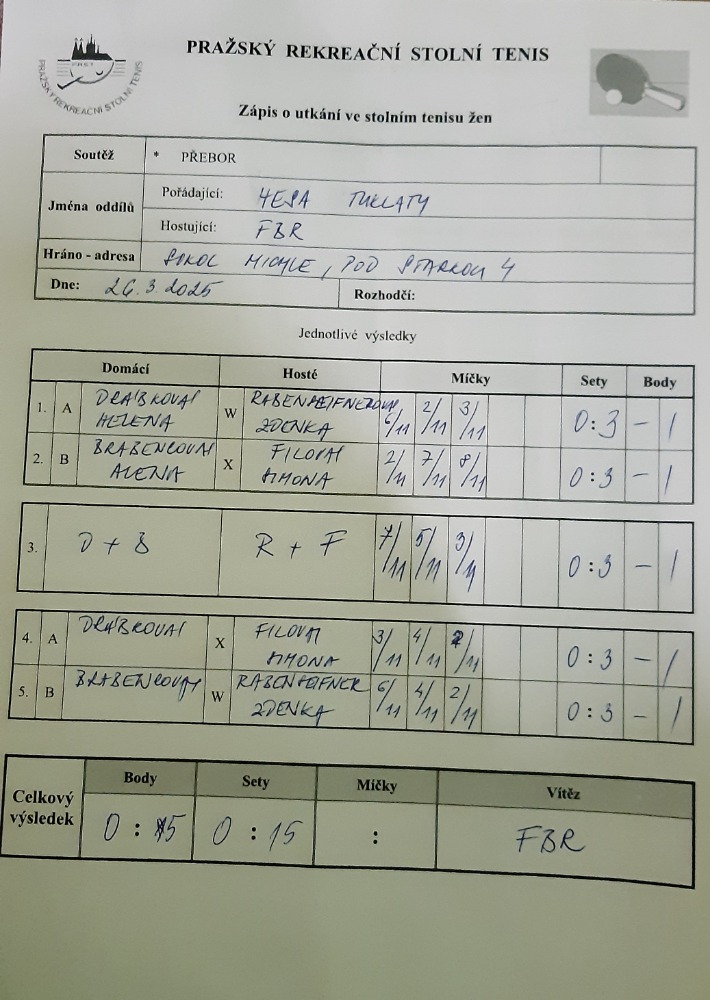 PRAŽSKÝ REKREAČNÍ STOLNÍ TENIS
PRET
PRAŽSKÝ REKREAČNÍ STOLNÍ TENIS
Zápis o utkání ve stolním tenisu žen
Soutěž * PŘEBOR
Jména oddílů
Pořádající: TUKLATY
Hostující: FBR
Hráno - adresa SOKOL MICHLE, POD STÁRKOU 4
Dne: 26.3.2025 Rozhodčí:
Jednotlivé výsledky
Domácí Hosté Míčky Sety Body
1. A DRÁBKOVÁ HELENA W RABENHEIFNEROVÁ ZDENKA 6/11 2/11 3/11 0:3 – 1
2. B BRABENCOVÁ ALENA X FILOVÁ SIMONA 2/11 7/11 8/11 0:3 – 1
3. D + B R + F 7/11 5/11 3/11 0:3 – 1
4. A DRÁBKOVÁ X FILOVÁ SIMONA 3/11 4/11 2/11 0:3 – 1
5. B BRABENCOVÁ W RABENHEIFNER ZDENKA 6/11 4/11 2/11 0:3 – 1
Celkový výsledek
Body Sety Míčky Vítěz
0 : 5 0 : 15 : FBR